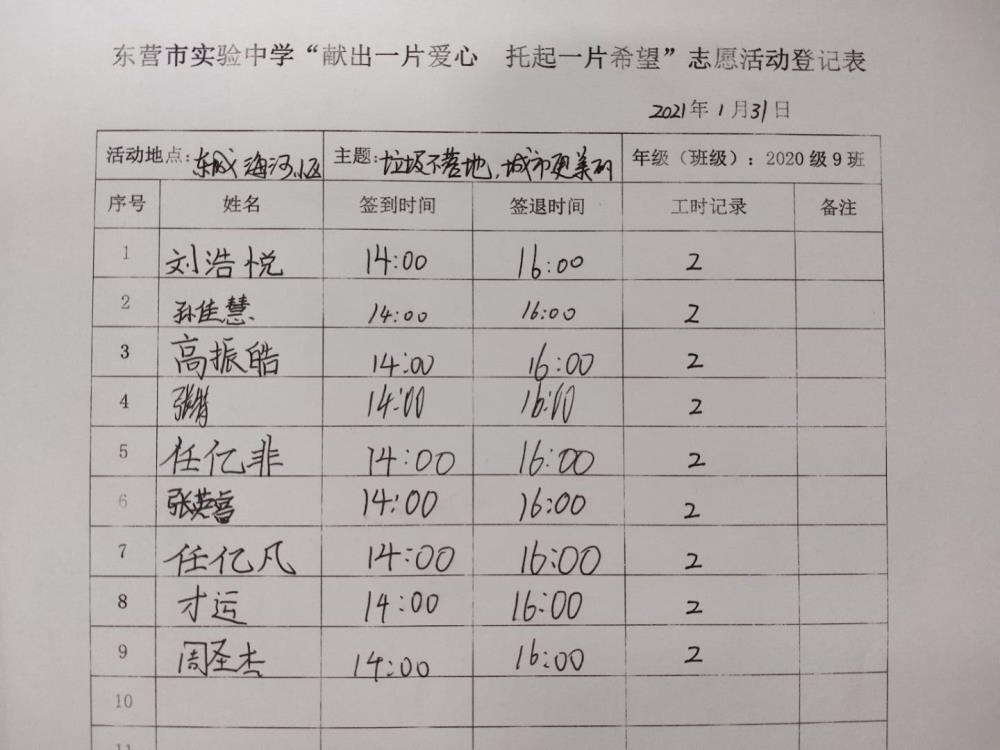 东营市实验中学“献出一片爱心 托起一片希望”志愿活动登记表
2021年1月31日
活动地点:东城海河小区 主题:垃圾不落地,城市更美丽 年级(班级):2020级9班
序号 姓名 签到时间 签退时间 工时记录 备注
1 刘浩悦 14:00 16:00 2
2 孙佳慧 14:00 16:00 2
3 高振皓 14:00 16:00 2
4 14:00 16:00 2
5 任亿非 14:00 16:00 2
6 张英喜 14:00 16:00 2
7 任亿凡 14:00 16:00 2
8 才运 14:00 16:00 2
9 周圣杰 14:00 16:00 2
10
11